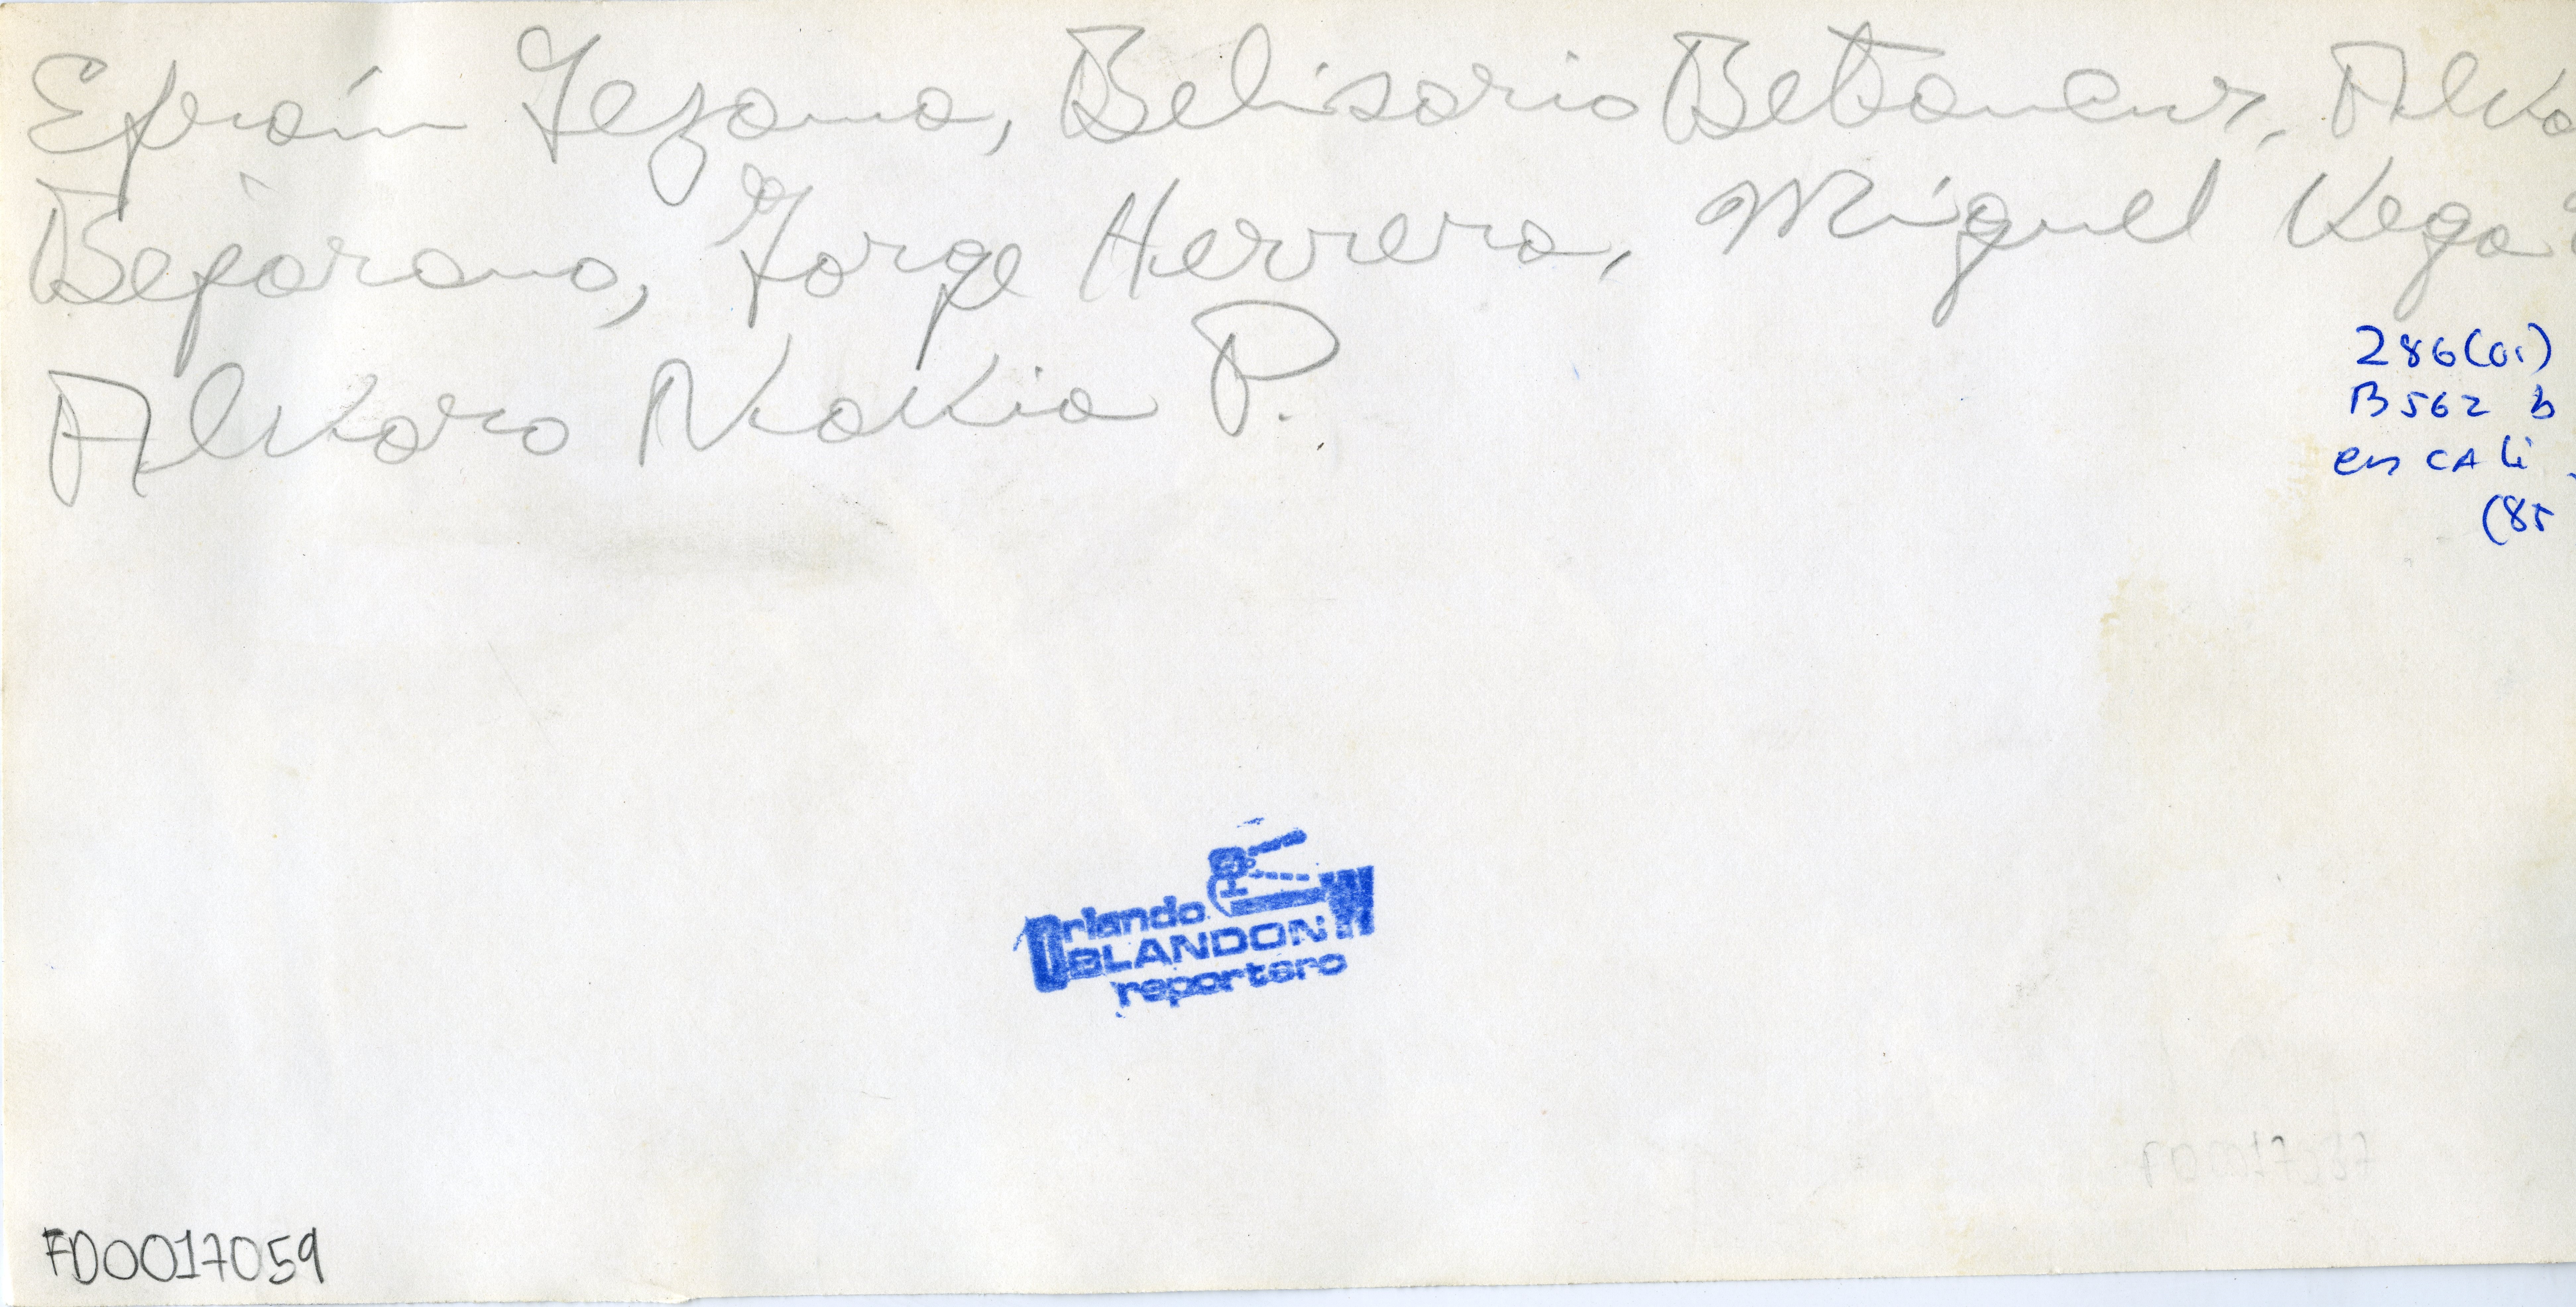 Efraín Lezama, Belisario Betancur, Alva
Bejarano, Jorge Herrera, Miguel Vega
Alvaro Navia P.
286(01)
B562 b
en CALi
(85
Orlando
BLANDON
reportero
FD0017059